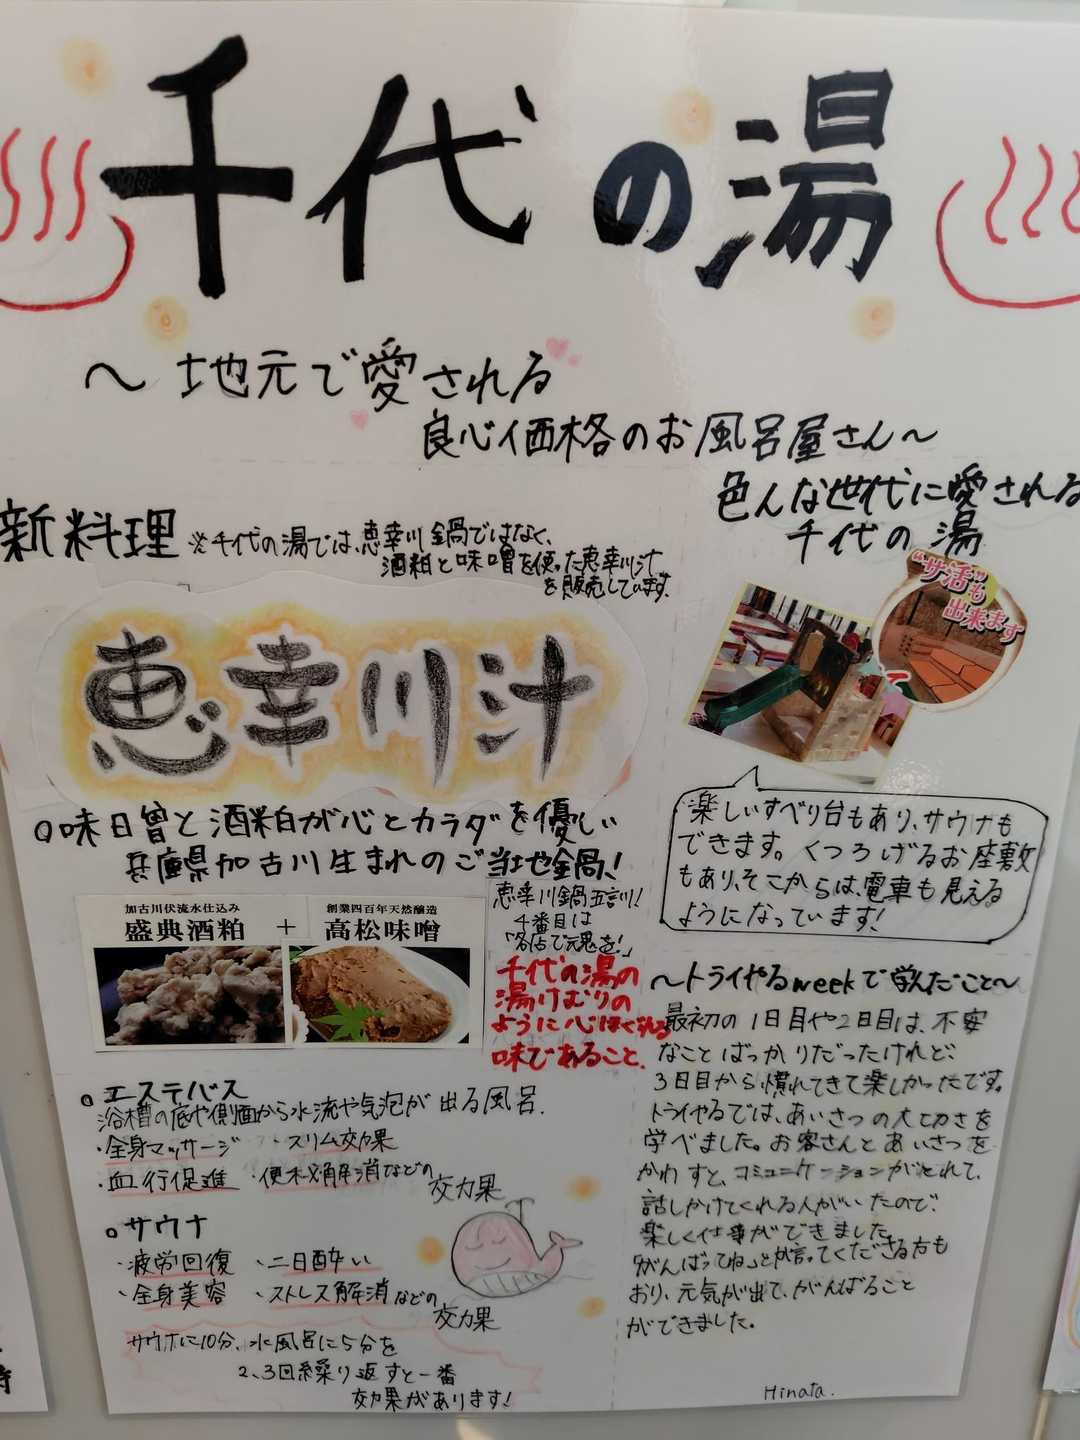 千代の湯
～地元で愛される
良心価格のお風呂屋さん～
新料理
※千代の湯では、恵幸川鍋ではなく、
酒粕と味噌を使った恵幸川汁
を販売しています。
恵幸川汁
○味噌と酒粕が心とカラダを優しい
兵庫県加古川生まれのご当地鍋！
加古川伏流水仕込み
盛典酒粕
+
創業四百年天然醸造
高松味噌
恵幸川鍋五言川！
4番目は
「名店で元気を！」
千代の湯の
湯けむりの
ように心ほぐれる
味であること、
○エステバス
浴槽の底や側面から水流や気泡が出る風呂.
・全身マッサージ ・スリム効果
・血行促進 ・便秘解消などの
効果
○サウナ
・疲労回復 ・二日酔い
・全身美容 ・ストレス解消などの
効果
サウナに10分、水風呂に5分を
2、3回繰り返すと一番
効果があります！
色んな世代に愛される
千代の湯
"サ活"も
出来ます
楽しいすべり台もあり、サウナも
できます。くつろげるお座敷
もあり、そこからは、電車も見える
ようになっています！
～トライやるweekで学んだこと～
最初の1日目や2日目は、不安
なことばっかりだったけれど、
3日目から慣れてきて楽しかったです。
トライやるでは、あいさつの大切さを
学べました。お客さんとあいさつを
かわすと、コミュニケーションがとれて、
話しかけてくれる人がいたので、
楽しく仕事ができました。
「がんばってね」とか言ってくださる方も
おり、元気が出て、がんばること
ができました。
Hinata.